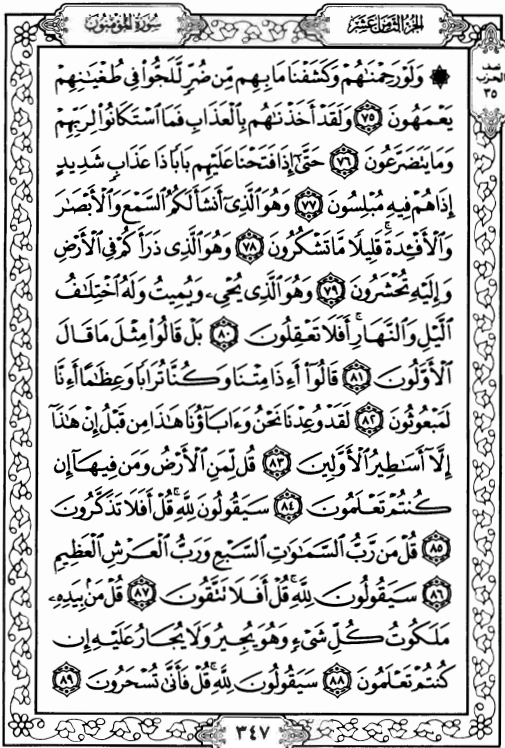 سورة المؤمنون
الجزء الثامن عشر
نصف
الحزب
٣٥
۞ وَلَوْ رَحِمْنَٰهُمْ وَكَشَفْنَا مَا بِهِم مِّن ضُرٍّ لَّلَجُّوا۟ فِى طُغْيَٰنِهِمْ
يَعْمَهُونَ ٧٥ وَلَقَدْ أَخَذْنَٰهُم بِٱلْعَذَابِ فَمَا ٱسْتَكَانُوا۟ لِرَبِّهِمْ
وَمَا يَتَضَرَّعُونَ ٧٦ حَتَّىٰٓ إِذَا فَتَحْنَا عَلَيْهِم بَابًا ذَا عَذَابٍ شَدِيدٍ
إِذَا هُمْ فِيهِ مُبْلِسُونَ ٧٧ وَهُوَ ٱلَّذِىٓ أَنشَأَ لَكُمُ ٱلسَّمْعَ وَٱلْأَبْصَٰرَ
وَٱلْأَفْـِٔدَةَ ۚ قَلِيلًا مَّا تَشْكُرُونَ ٧٨ وَهُوَ ٱلَّذِى ذَرَأَكُمْ فِى ٱلْأَرْضِ
وَإِلَيْهِ تُحْشَرُونَ ٧٩ وَهُوَ ٱلَّذِى يُحْىِۦ وَيُمِيتُ وَلَهُ ٱخْتِلَٰفُ
ٱلَّيْلِ وَٱلنَّهَارِ ۚ أَفَلَا تَعْقِلُونَ ٨٠ بَلْ قَالُوا۟ مِثْلَ مَا قَالَ
ٱلْأَوَّلُونَ ٨١ قَالُوٓا۟ أَءِذَا مِتْنَا وَكُنَّا تُرَابًا وَعِظَٰمًا أَءِنَّا
لَمَبْعُوثُونَ ٨٢ لَقَدْ وُعِدْنَا نَحْنُ وَءَابَآؤُنَا هَٰذَا مِن قَبْلُ إِنْ هَٰذَآ
إِلَّآ أَسَٰطِيرُ ٱلْأَوَّلِينَ ٨٣ قُل لِّمَنِ ٱلْأَرْضُ وَمَن فِيهَآ إِن
كُنتُمْ تَعْلَمُونَ ٨٤ سَيَقُولُونَ لِلَّهِ ۚ قُلْ أَفَلَا تَذَكَّرُونَ
٨٥ قُلْ مَن رَّبُّ ٱلسَّمَٰوَٰتِ ٱلسَّبْعِ وَرَبُّ ٱلْعَرْشِ ٱلْعَظِيمِ
٨٦ سَيَقُولُونَ لِلَّهِ ۚ قُلْ أَفَلَا تَتَّقُونَ ٨٧ قُلْ مَنۢ بِيَدِهِۦ
مَلَكُوتُ كُلِّ شَىْءٍ وَهُوَ يُجِيرُ وَلَا يُجَارُ عَلَيْهِ إِن
كُنتُمْ تَعْلَمُونَ ٨٨ سَيَقُولُونَ لِلَّهِ ۚ قُلْ فَأَنَّىٰ تُسْحَرُونَ ٨٩
٣٤٧